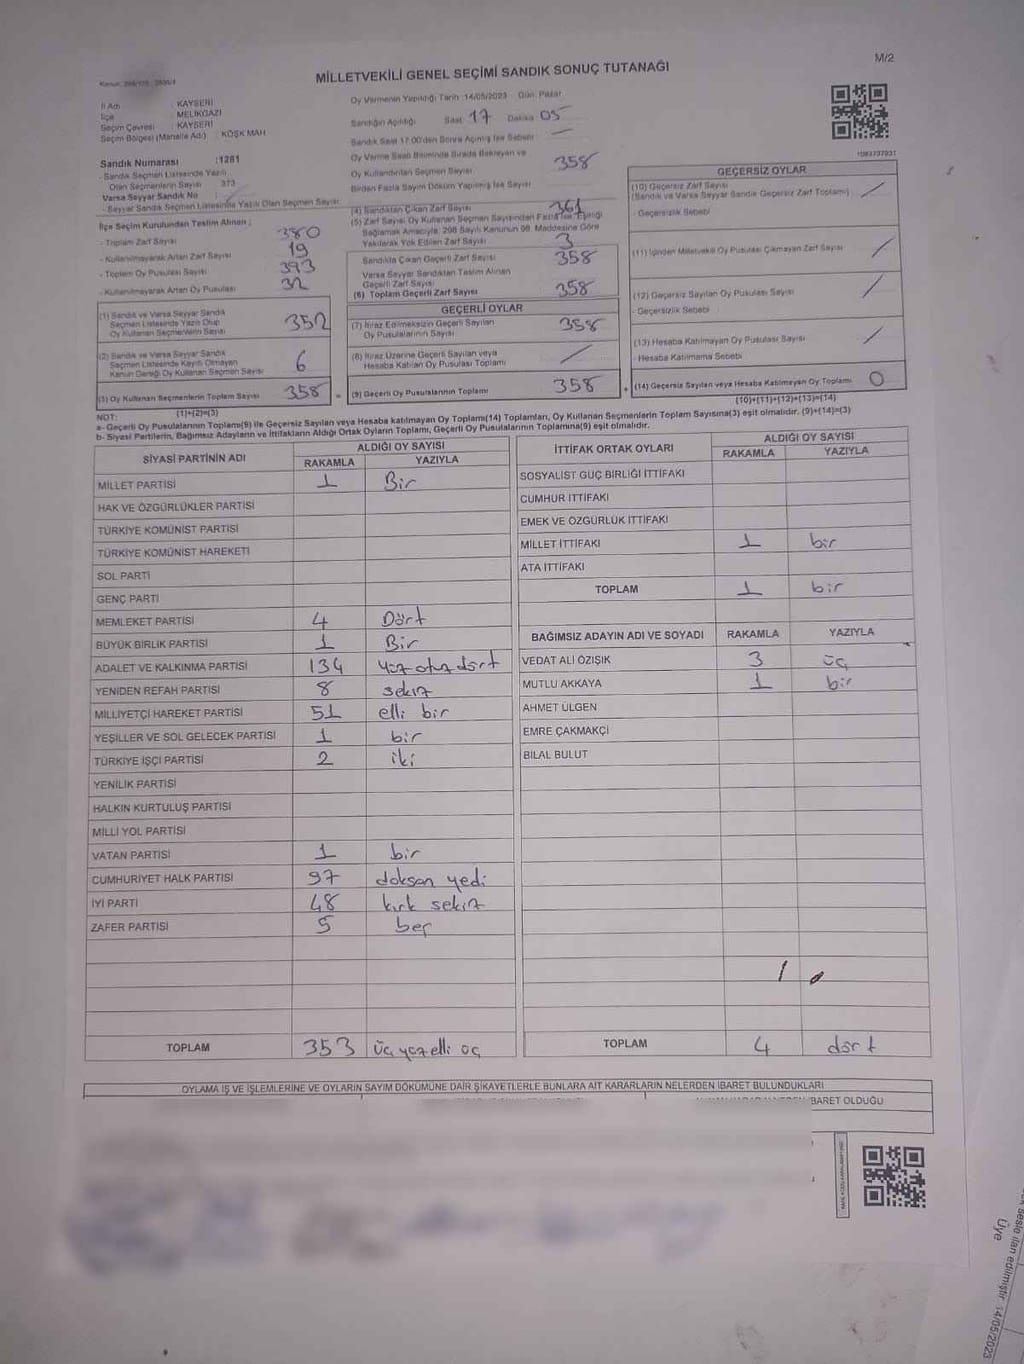 M/2
MİLLETVEKİLİ GENEL SEÇİMİ SANDIK SONUÇ TUTANAĞI
İl Adı : KAYSERİ
İlçe : MELİKGAZİ
Seçim Çevresi : KAYSERİ
Seçim Bölgesi (Mahalle Adı) : KÖŞK MAH
Sandık Numarası :1261
- Sandık Seçmen Listesinde Yazılı
Olan Seçmenlerin Sayısı 373
Varsa Seyyar Sandık No :
- Seyyar Sandık Seçmen Listesinde Yazılı Olan Seçmen Sayısı:
İlçe Seçim Kurulundan Teslim Alınan :
- Toplam Zarf Sayısı 380
- Kullanılmayarak Artan Zarf Sayısı 19
- Toplam Oy Pusulası Sayısı 393
- Kullanılmayarak Artan Oy Pusulası 32
(1) Sandık ve Varsa Seyyar Sandık
Seçmen Listesinde Yazılı Olup
Oy Kullanan Seçmenlerin Sayısı 352
(2) Sandık ve Varsa Seyyar Sandık
Seçmen Listesinde Kayıtlı Olmayan
Kanun Gereği Oy Kullanan Seçmen Sayısı 6
(3) Oy Kullanan Seçmenlerin Toplam Sayısı 358
(1)+(2)=(3)
Oy Vermenin Yapıldığı Tarih :14/05/2023 Gün: Pazar
Sandığın Açıldığı Saat 17 Dakika 05
Sandık Saat 17:00'den Sonra Açılmış İse Sebebi :
Oy Verme Saati Bitiminde Sırada Bekleyen ve
Oy Kullandırılan Seçmen Sayısı 358
Birden Fazla Sayım Döküm Yapılmış İse Sayısı
(4) Sandıktan Çıkan Zarf Sayısı 361
(5) Zarf Sayısı Oy Kullanan Seçmen Sayısından Fazla İse, Eşitliği
Sağlamak Amacıyla, 298 Sayılı Kanunun 98. Maddesine Göre
Yakılarak Yok Edilen Zarf Sayısı 3
Sandıkta Çıkan Geçerli Zarf Sayısı 358
Varsa Seyyar Sandıktan Teslim Alınan
Geçerli Zarf Sayısı
(6) Toplam Geçerli Zarf Sayısı 358
GEÇERLİ OYLAR
(7) İtiraz Edilmeksizin Geçerli Sayılan
Oy Pusulalarının Sayısı 358
(8) İtiraz Üzerine Geçerli Sayılan veya
Hesaba Katılan Oy Pusulası Toplamı /
= (9) Geçerli Oy Pusulalarının Toplamı 358
GEÇERSİZ OYLAR
(10) Geçersiz Zarf Sayısı
(Sandık ve Varsa Seyyar Sandık Geçersiz Zarf Toplamı) /
- Geçersizlik Sebebi
(11) İçinden Milletvekili Oy Pusulası Çıkmayan Zarf Sayısı /
(12) Geçersiz Sayılan Oy Pusulası Sayısı /
- Geçersizlik Sebebi
(13) Hesaba Katılmayan Oy Pusulası Sayısı /
- Hesaba Katılmama Sebebi
+ (14) Geçersiz Sayılan veya Hesaba Katılmayan Oy Toplamı 0
(10)+(11)+(12)+(13)=(14)
NOT:
a- Geçerli Oy Pusulalarının Toplamı(9) ile Geçersiz Sayılan veya Hesaba katılmayan Oy Toplamı(14) Toplamları, Oy Kullanan Seçmenlerin Toplam Sayısına(3) eşit olmalıdır. (9)+(14)=(3)
b- Siyasi Partilerin, Bağımsız Adayların ve İttifakların Aldığı Ortak Oyların Toplamı, Geçerli Oy Pusulalarının Toplamına(9) eşit olmalıdır.
SİYASİ PARTİNİN ADI ALDIĞI OY SAYISI
RAKAMLA YAZIYLA
MİLLET PARTİSİ 1 Bir
HAK VE ÖZGÜRLÜKLER PARTİSİ
TÜRKİYE KOMÜNİST PARTİSİ
TÜRKİYE KOMÜNİST HAREKETİ
SOL PARTİ
GENÇ PARTİ
MEMLEKET PARTİSİ 4 Dört
BÜYÜK BİRLİK PARTİSİ 1 Bir
ADALET VE KALKINMA PARTİSİ 134 Yüz otuz dört
YENİDEN REFAH PARTİSİ 8 sekiz
MİLLİYETÇİ HAREKET PARTİSİ 51 elli bir
YEŞİLLER VE SOL GELECEK PARTİSİ 1 bir
TÜRKİYE İŞÇİ PARTİSİ 2 iki
YENİLİK PARTİSİ
HALKIN KURTULUŞ PARTİSİ
MİLLİ YOL PARTİSİ
VATAN PARTİSİ 1 bir
CUMHURİYET HALK PARTİSİ 97 doksan yedi
İYİ PARTİ 48 kırk sekiz
ZAFER PARTİSİ 5 beş
TOPLAM 353 üç yüz elli üç
İTTİFAK ORTAK OYLARI ALDIĞI OY SAYISI
RAKAMLA YAZIYLA
SOSYALİST GÜÇ BİRLİĞİ İTTİFAKI
CUMHUR İTTİFAKI
EMEK VE ÖZGÜRLÜK İTTİFAKI
MİLLET İTTİFAKI 1 bir
ATA İTTİFAKI
TOPLAM 1 bir
BAĞIMSIZ ADAYIN ADI VE SOYADI RAKAMLA YAZIYLA
VEDAT ALİ ÖZIŞIK 3 üç
MUTLU AKKAYA 1 bir
AHMET ÜLGEN
EMRE ÇAKMAKÇİ
BİLAL BULUT
TOPLAM 4 dört
OYLAMA İŞ VE İŞLEMLERİNE VE OYLARIN SAYIM DÖKÜMÜNE DAİR ŞİKAYETLERLE BUNLARA AİT KARARLARIN NELERDEN İBARET BULUNDUKLARI
İBARET OLDUĞU
ilan edilmiştir. 14/05/2023
Üye